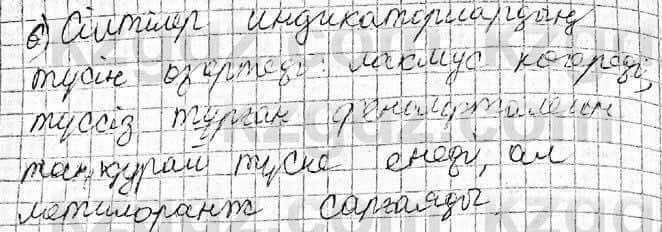 в) Сілтілер индикаторлардың
түсін өзгертеді: лакмус көгереді,
түссіз тұрған фенолфталеин
таңқурай түске енеді, ал
метилоранж сарғаяды.